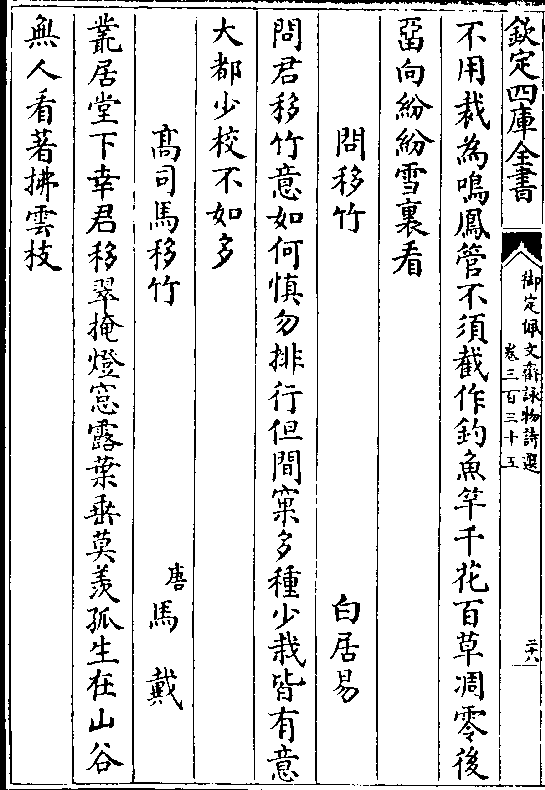 欽定四庫全書
御定佩文齋詠物詩選
卷三百三十五
二十八
不用裁為鳴鳳管不須截作釣魚竿千花百草凋零後
畱向紛紛雪裏看
問移竹
白居易
問君移竹意如何慎勿排行但間窠多種少栽皆有意
大都少校不如多
髙司馬移竹
唐馬戴
叢居堂下幸君移翠掩燈窓露葉垂莫羨孤生在山谷
無人看著拂雲枝